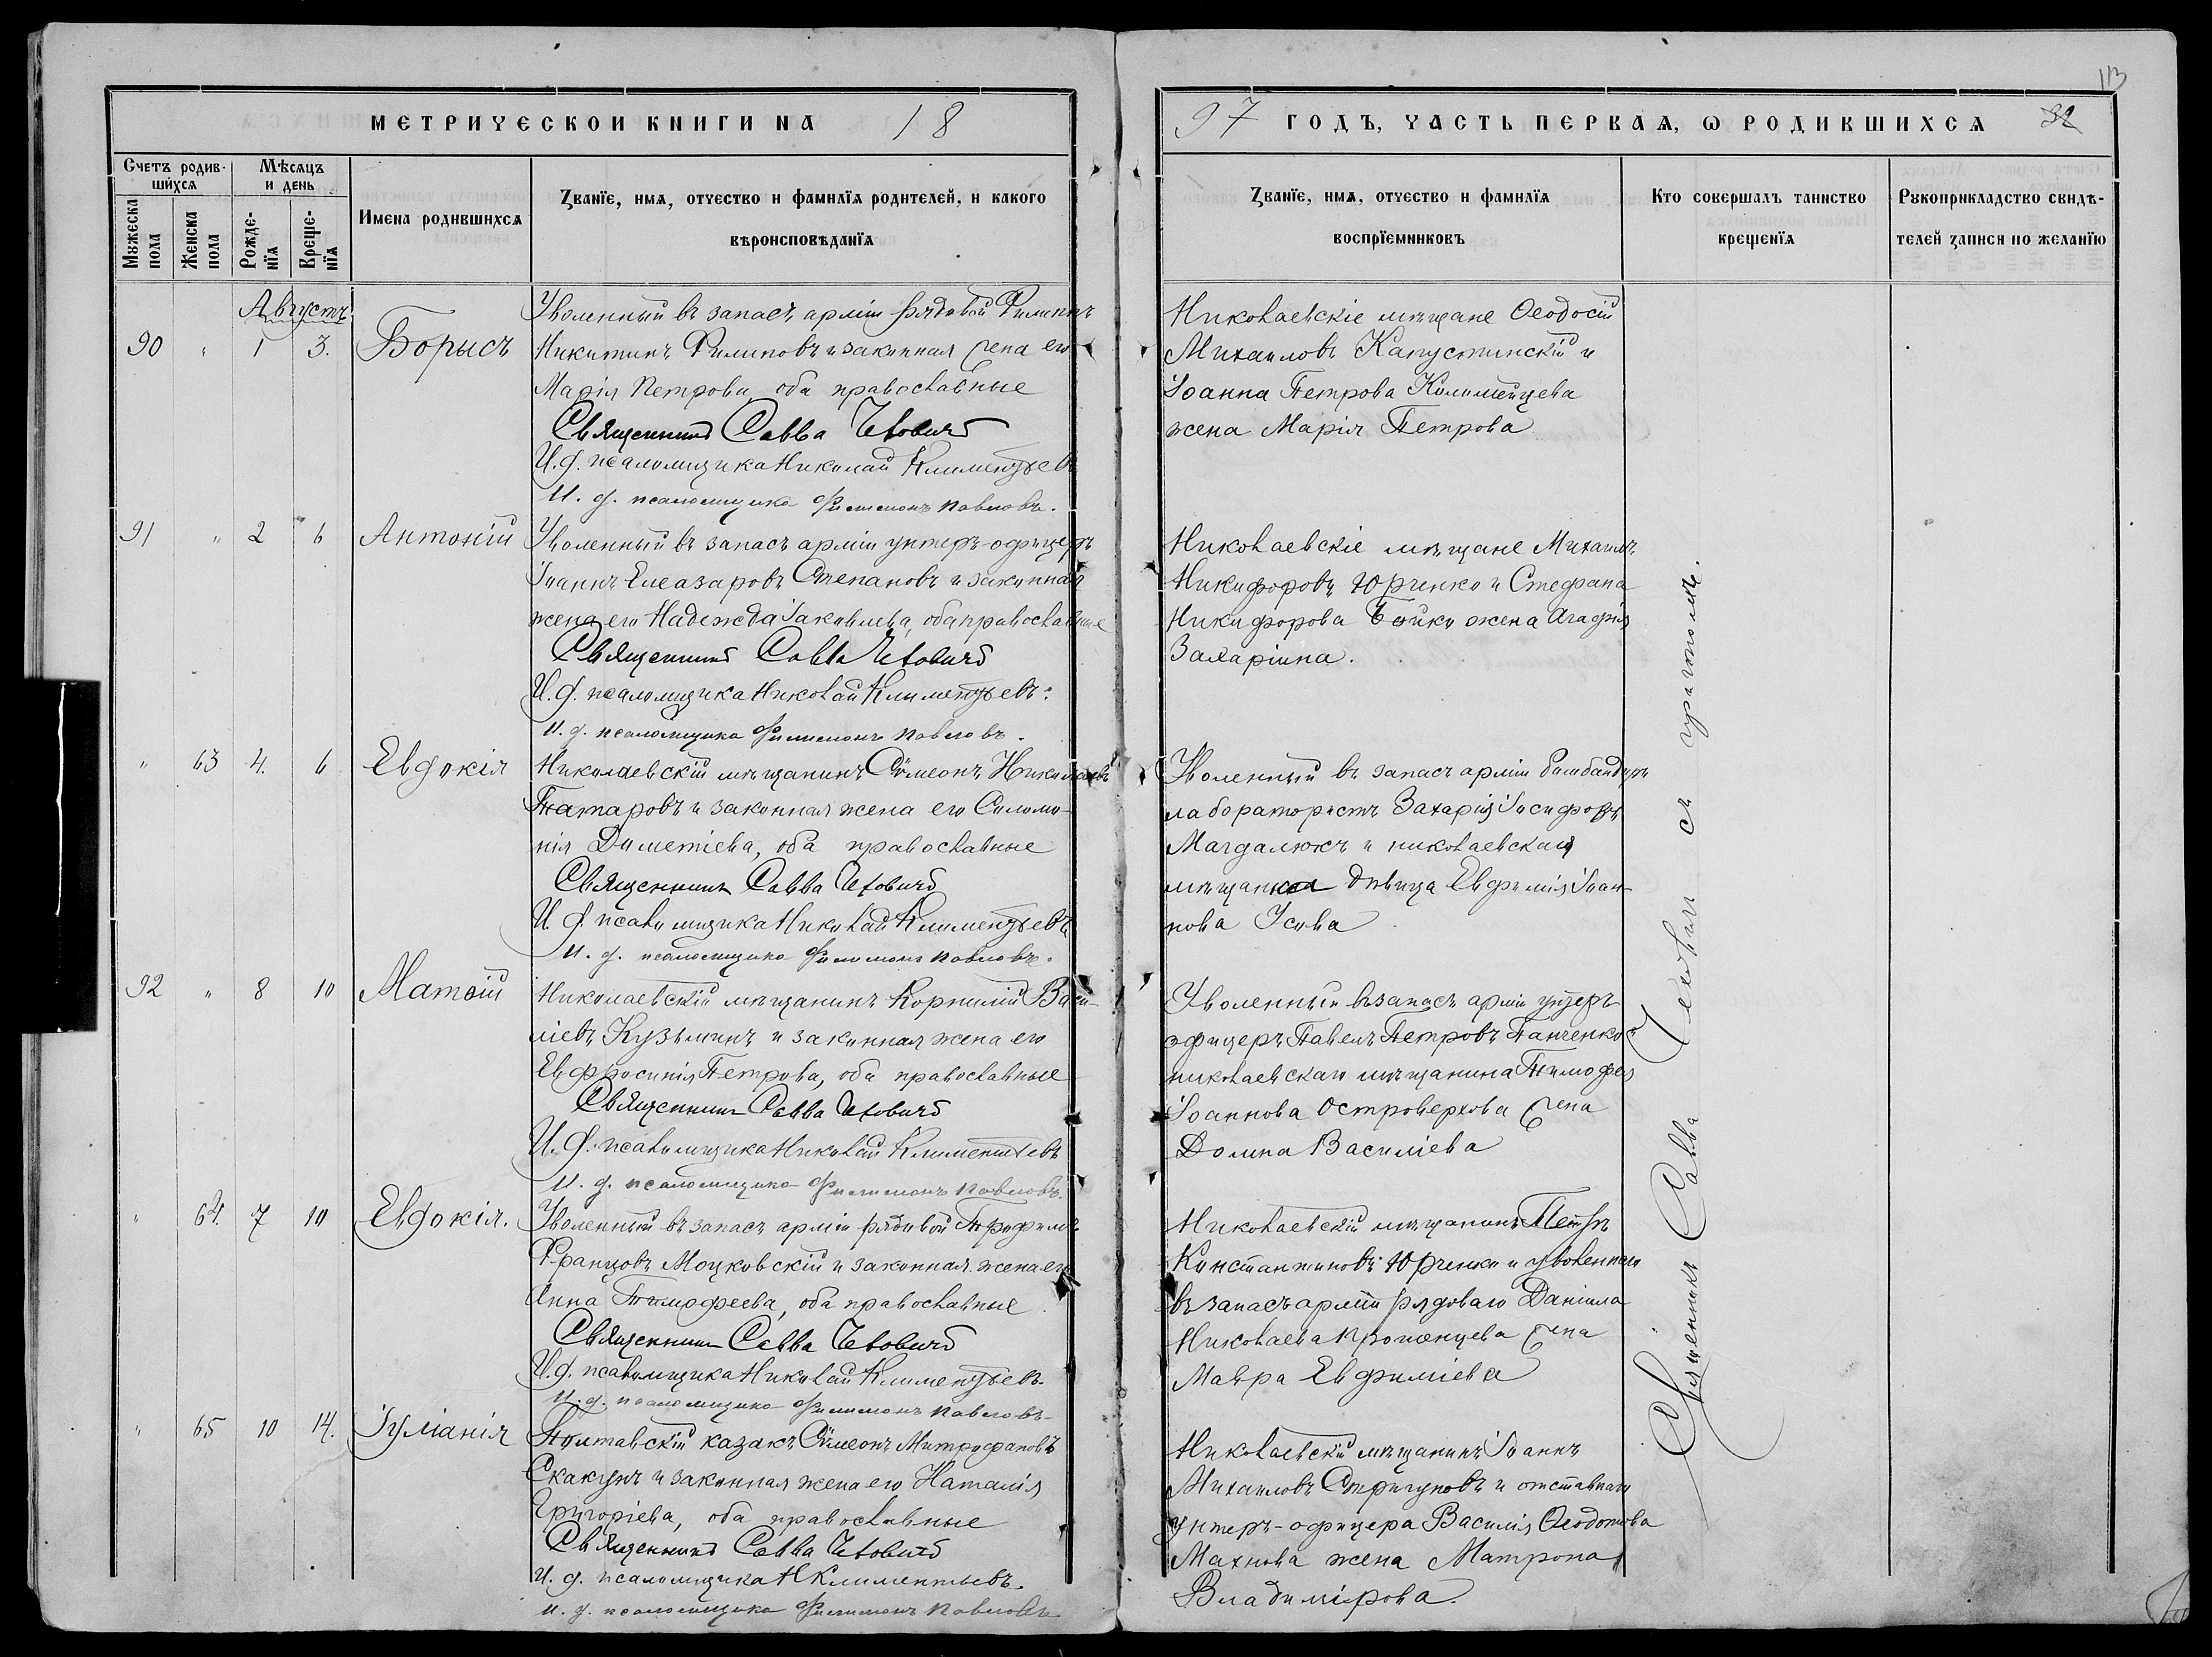 МЕТРИЧЕСКОЙ КНИГИ НА 18
Счетъ родив-
шихся
Мѣсяцъ
и день
Мужеска
пола
Женска
пола
Рожде-
нія
Креще-
нія
Имена родившихся
Званіе, имя, отчество и фамилія родителей, и какого
вѣроисповѣданія
Августъ
90 " 1 3. Борисъ
Уволенный въ запасъ арміи рядовой Филиппъ
Никитинъ Филиповъ и законная жена его
Марія Петрова, оба православные
Священникъ Савва
И. д. псаломщика Николай Климентьевъ
И. д. псаломщика Филимонъ Павловъ.
91 " 2 6 Антоній
Уволенный въ запасъ арміи унтеръ-офицеръ
Іоаннъ Елеазаровъ Степановъ и законная
жена его Надежда Іаковлева, оба православные
Священникъ Савва
И. д. псаломщика Николай Климентьевъ.
И. д. псаломщика Филимонъ Павловъ.
" 63 4. 6 Евдокія
Николаевскій мѣщанинъ Сѵмеонъ Николаевъ
Татаровъ и законная жена его Соломо-
нія Диметіева, оба православные
Священникъ Савва
И. д. псаломщика Николай Климентьевъ
И. д. псаломщика Филимонъ Павловъ.
92 " 8 10 Матѳій
Николаевскій мѣщанинъ Корнилій Васи-
ліевъ Кузьминъ и законная жена его
Евфросинія Петрова, оба православные
Священникъ Савва
И. д. псаломщика Николай Климентьевъ
И. д. псаломщика Филимонъ Павловъ.
" 64. 7 10 Евдокія.
Уволенный въ запасъ арміи рядовой Трофимъ
Францовъ Моцковскій и законная жена его
Анна Тимофеева, оба православные.
Священникъ Савва
И. д. псаломщика Николай Климентьевъ.
И. д. псаломщика Филимонъ Павловъ
" 65 10 14. Іуліанія
Полтавскій казакъ Сѵмеонъ Митрофановъ
Скакунъ и законная жена его Наталія
Григоріева, оба православные
Священникъ Савва
И. д. псаломщика Н Климентьевъ.
И. д. псаломщика Филимонъ Павловъ
113
97 ГОДЪ, ЧАСТЬ ПЕРВАЯ, Ѡ РОДИВШИХСЯ 32
Званіе, имя, отчество и фамилія
воспріемниковъ
Кто совершалъ таинство
крещенія
Рукоприкладство свидѣ-
телей записи по желанію
Николаевскіе мѣщане Ѳеодосій
Михаиловъ Капустинскій и
Іоанна Петрова Коломейцева
жена Марія Петрова
Николаевскіе мѣщане Михаилъ
Никифоровъ Юрченко и Стефана
Никифорова Бойко жена Агафія
Захаріина.
Уволенный въ запасъ арміи бомбандиръ
лаборатористъ Захарія Іосифовъ
Магдалюкъ и николаевская
мѣщанка дѣвица Евфимія Іоан-
нова Усова
Уволенный въ запасъ арміи унтеръ
офицеръ Павелъ Петровъ Панченко и
николаевскаго мѣщанина Тимофея
Іоаннова Островерхова жена
Домна Василіева
Николаевскій мѣщанинъ Петръ
Константиновъ Юрченко и уволеннаго
въ запасъ арміи рядоваго Даніила
Николаева жена
Мавра Евфиміева
Николаевскій мѣщанинъ Іоаннъ
Михаиловъ Стригуновъ и отставнаго
унтеръ-офицера Василія Ѳеодотова
Махнова жена Матрона
Владимірова.
Священникъ Савва съ причтомъ.